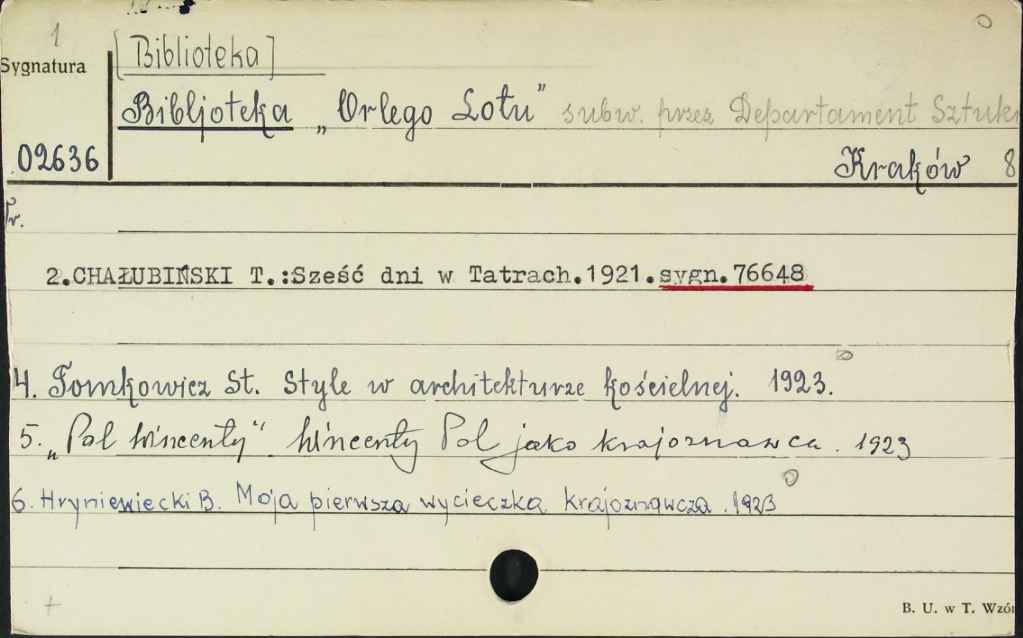 1
[Biblioteka]
Sygnatura
Bibljoteka „Orlego Lotu" subw. przez Departament Sztuki
02636
Kraków 8
Tr.
2.CHAŁUBIŃSKI T.:Sześć dni w Tatrach.1921.sygn.76648
4. Tomkowicz St. Style w architekturze kościelnej. 1923.
5. „Pol Wincenty" Wincenty Pol jako krajoznawca. 1923
6. Hryniewiecki B. Moja pierwsza wycieczka krajoznawcza. 1923
B. U. w T. Wzór